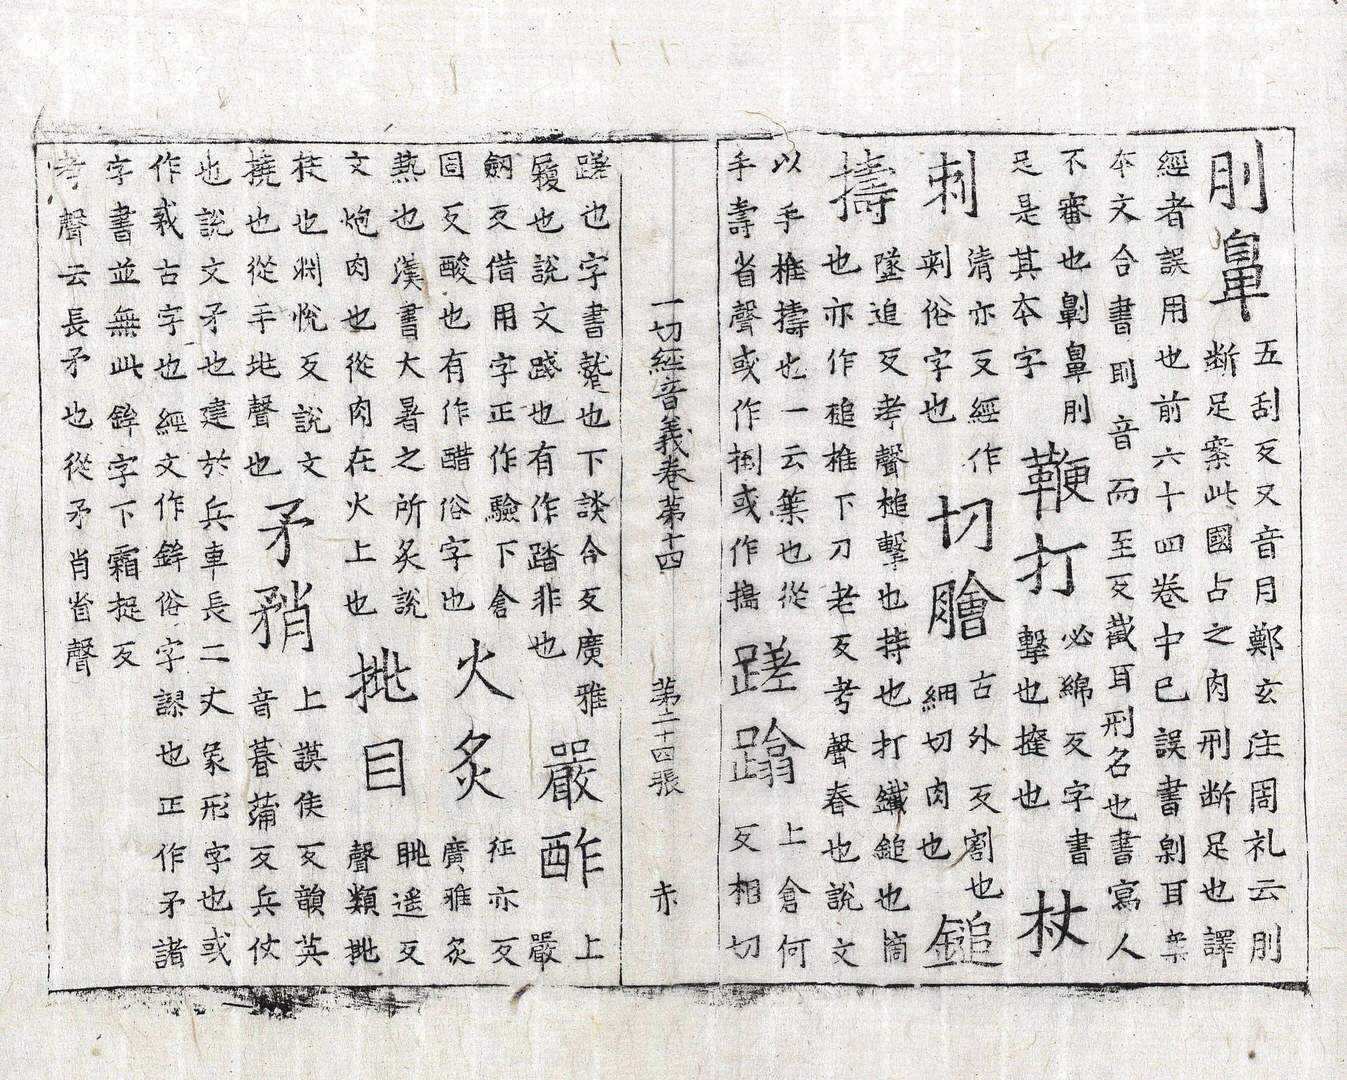 刖鼻
五刮反又音月鄭玄注周礼云刖
断足案此國占之肉刑断足也譯
經者誤用也前六十四卷中已誤書剠耳案
本文合書刵音而至反截耳刑名也書寫人
不審也劓鼻刖
足是其本字
鞭打
必綿反字書
擊也撻也
杖
刺
清亦反經作
刾俗字也
切膾
古外反割也
細切肉也
鎚
擣
墜追反考聲槌擊也持也打鐵鎚也筒
也亦作槌椎下刀老反考聲舂也說文
以手椎擣也一云築也從
手壽省聲或作捯或作搗
蹉蹹
上倉何
反相切
一切經音義卷第十四 第二十四張 赤
蹉也字書蹵也下談合反廣雅
履也說文踐也有作踏非也
嚴酢
上
嚴
釼反借用字正作驗下倉
固反酸也有作醋俗字也
火炙
征亦反
廣雅炙
熱也漢書大暑之所炙說
文炮肉也從肉在火上也
挑目
眺遥反
聲類挑
抉也渊悅反說文
撓也從手兆聲也
矛矟
上謨侯反韻英
音暮蒲反兵仗
也說文矛也建於兵車長二丈象形字也或
作𢦧古字也經文作鉾俗字謬也正作矛諸
字書並無此鉾字下霜捉反
考聲云長矛也從矛肖省聲